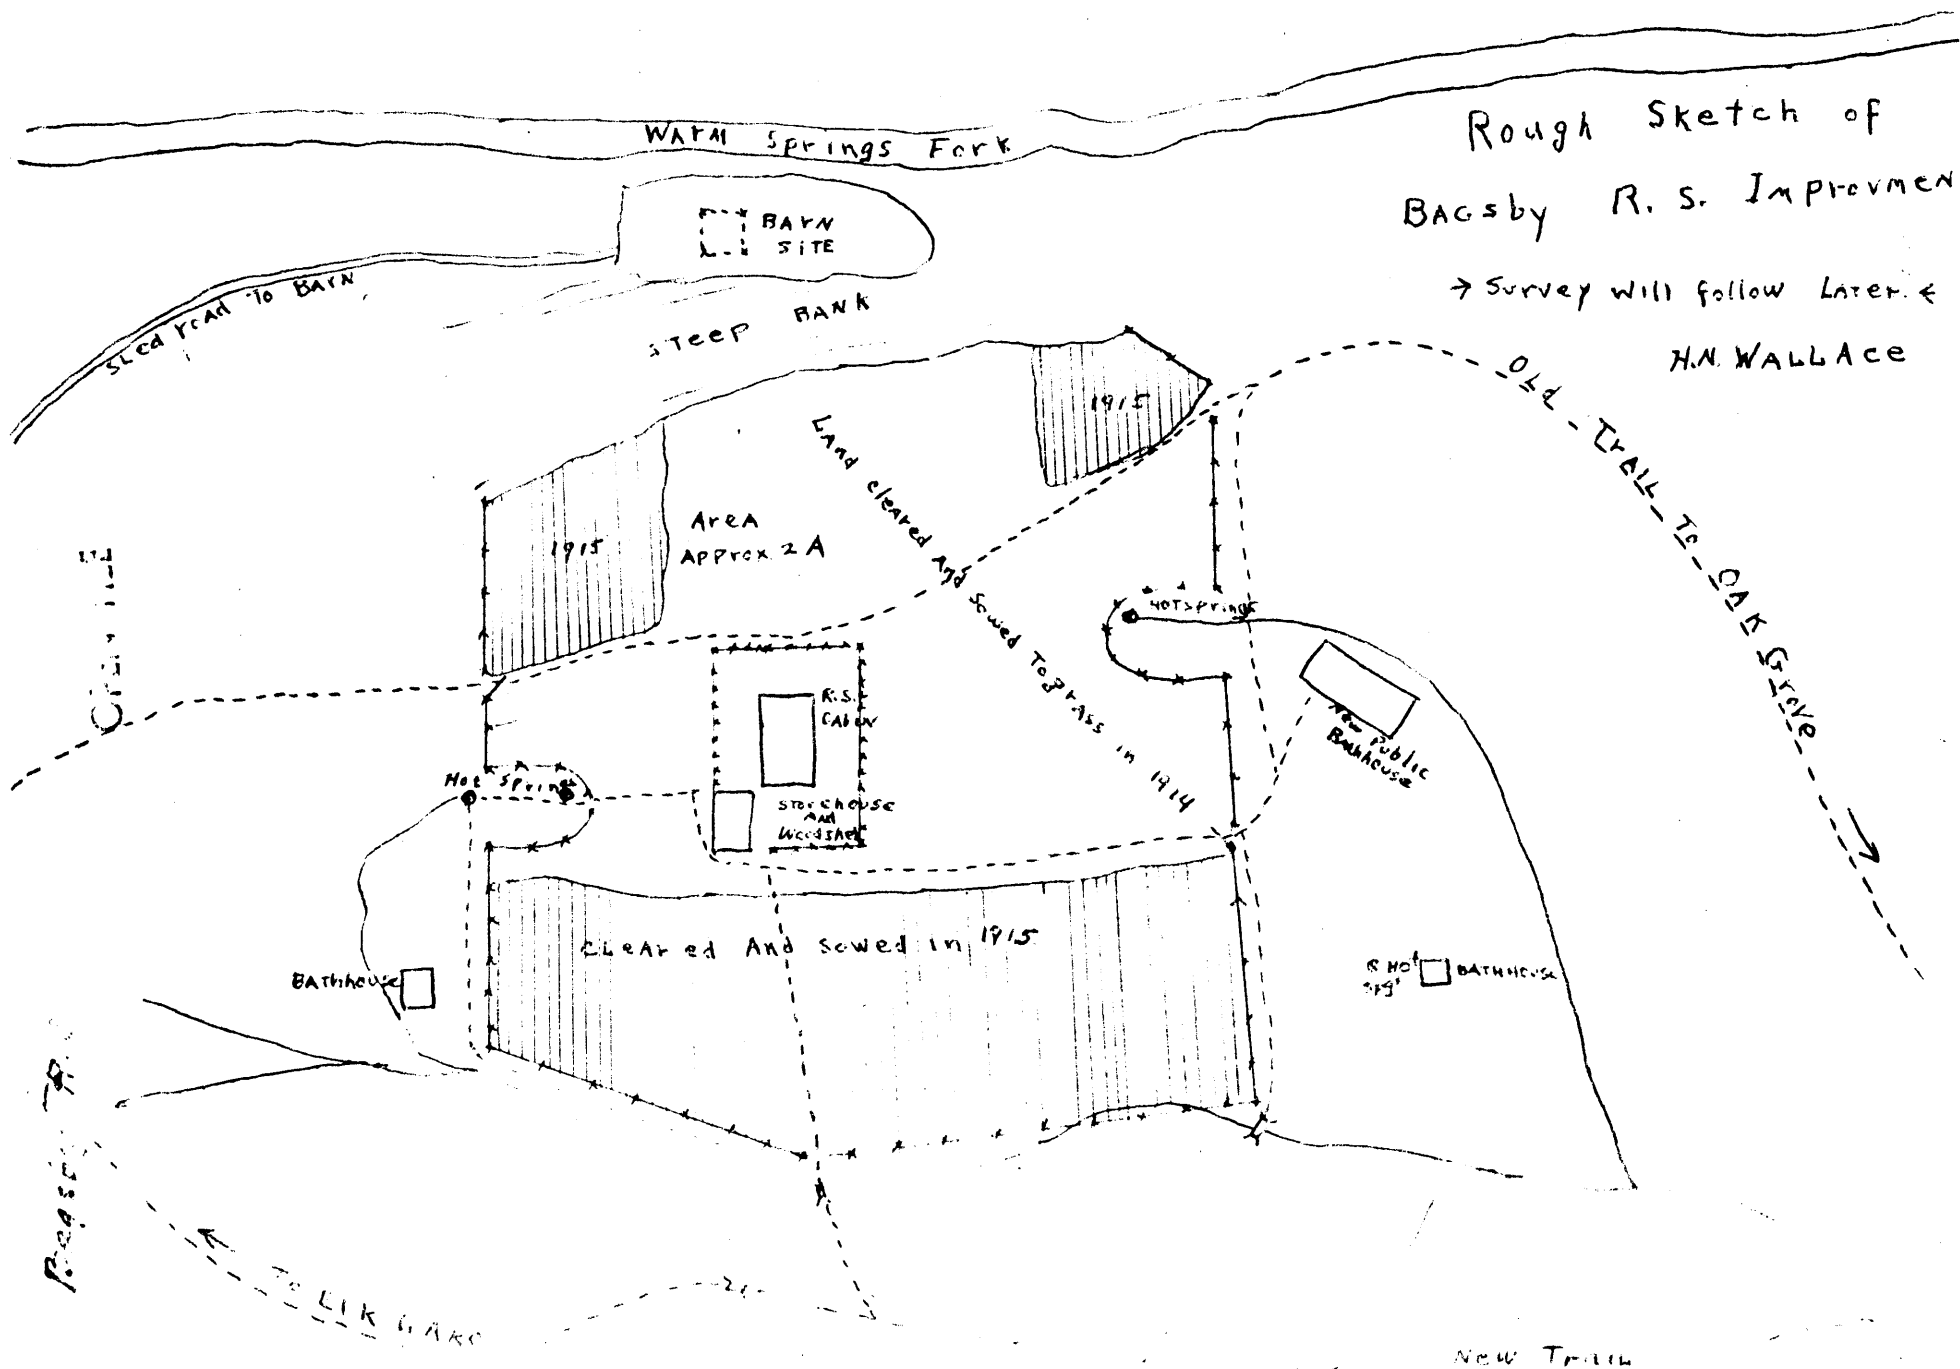 Rough Sketch of
BAGsby R. S. IMProvmen
→ Survey will follow Later. ←
H.N. WALLACe
WArM Springs Fork
BArN
SiTE
SLed road To BArN
STeep BANK
1915
1915
AreA
Approx. 2 A
LAnd cleared And Sowed To grass in 1914
OLD TrAIL To OAK Grove
HOT springs
R.S.
CAbin
New Public
Bathhouse
Hot Springs
Storehouse
And
Woodshed
CLeAred And sowed in 1915
BAThhouse
Hot
spg
BATHHOUSE
To ELK LAKe
New TrAiL